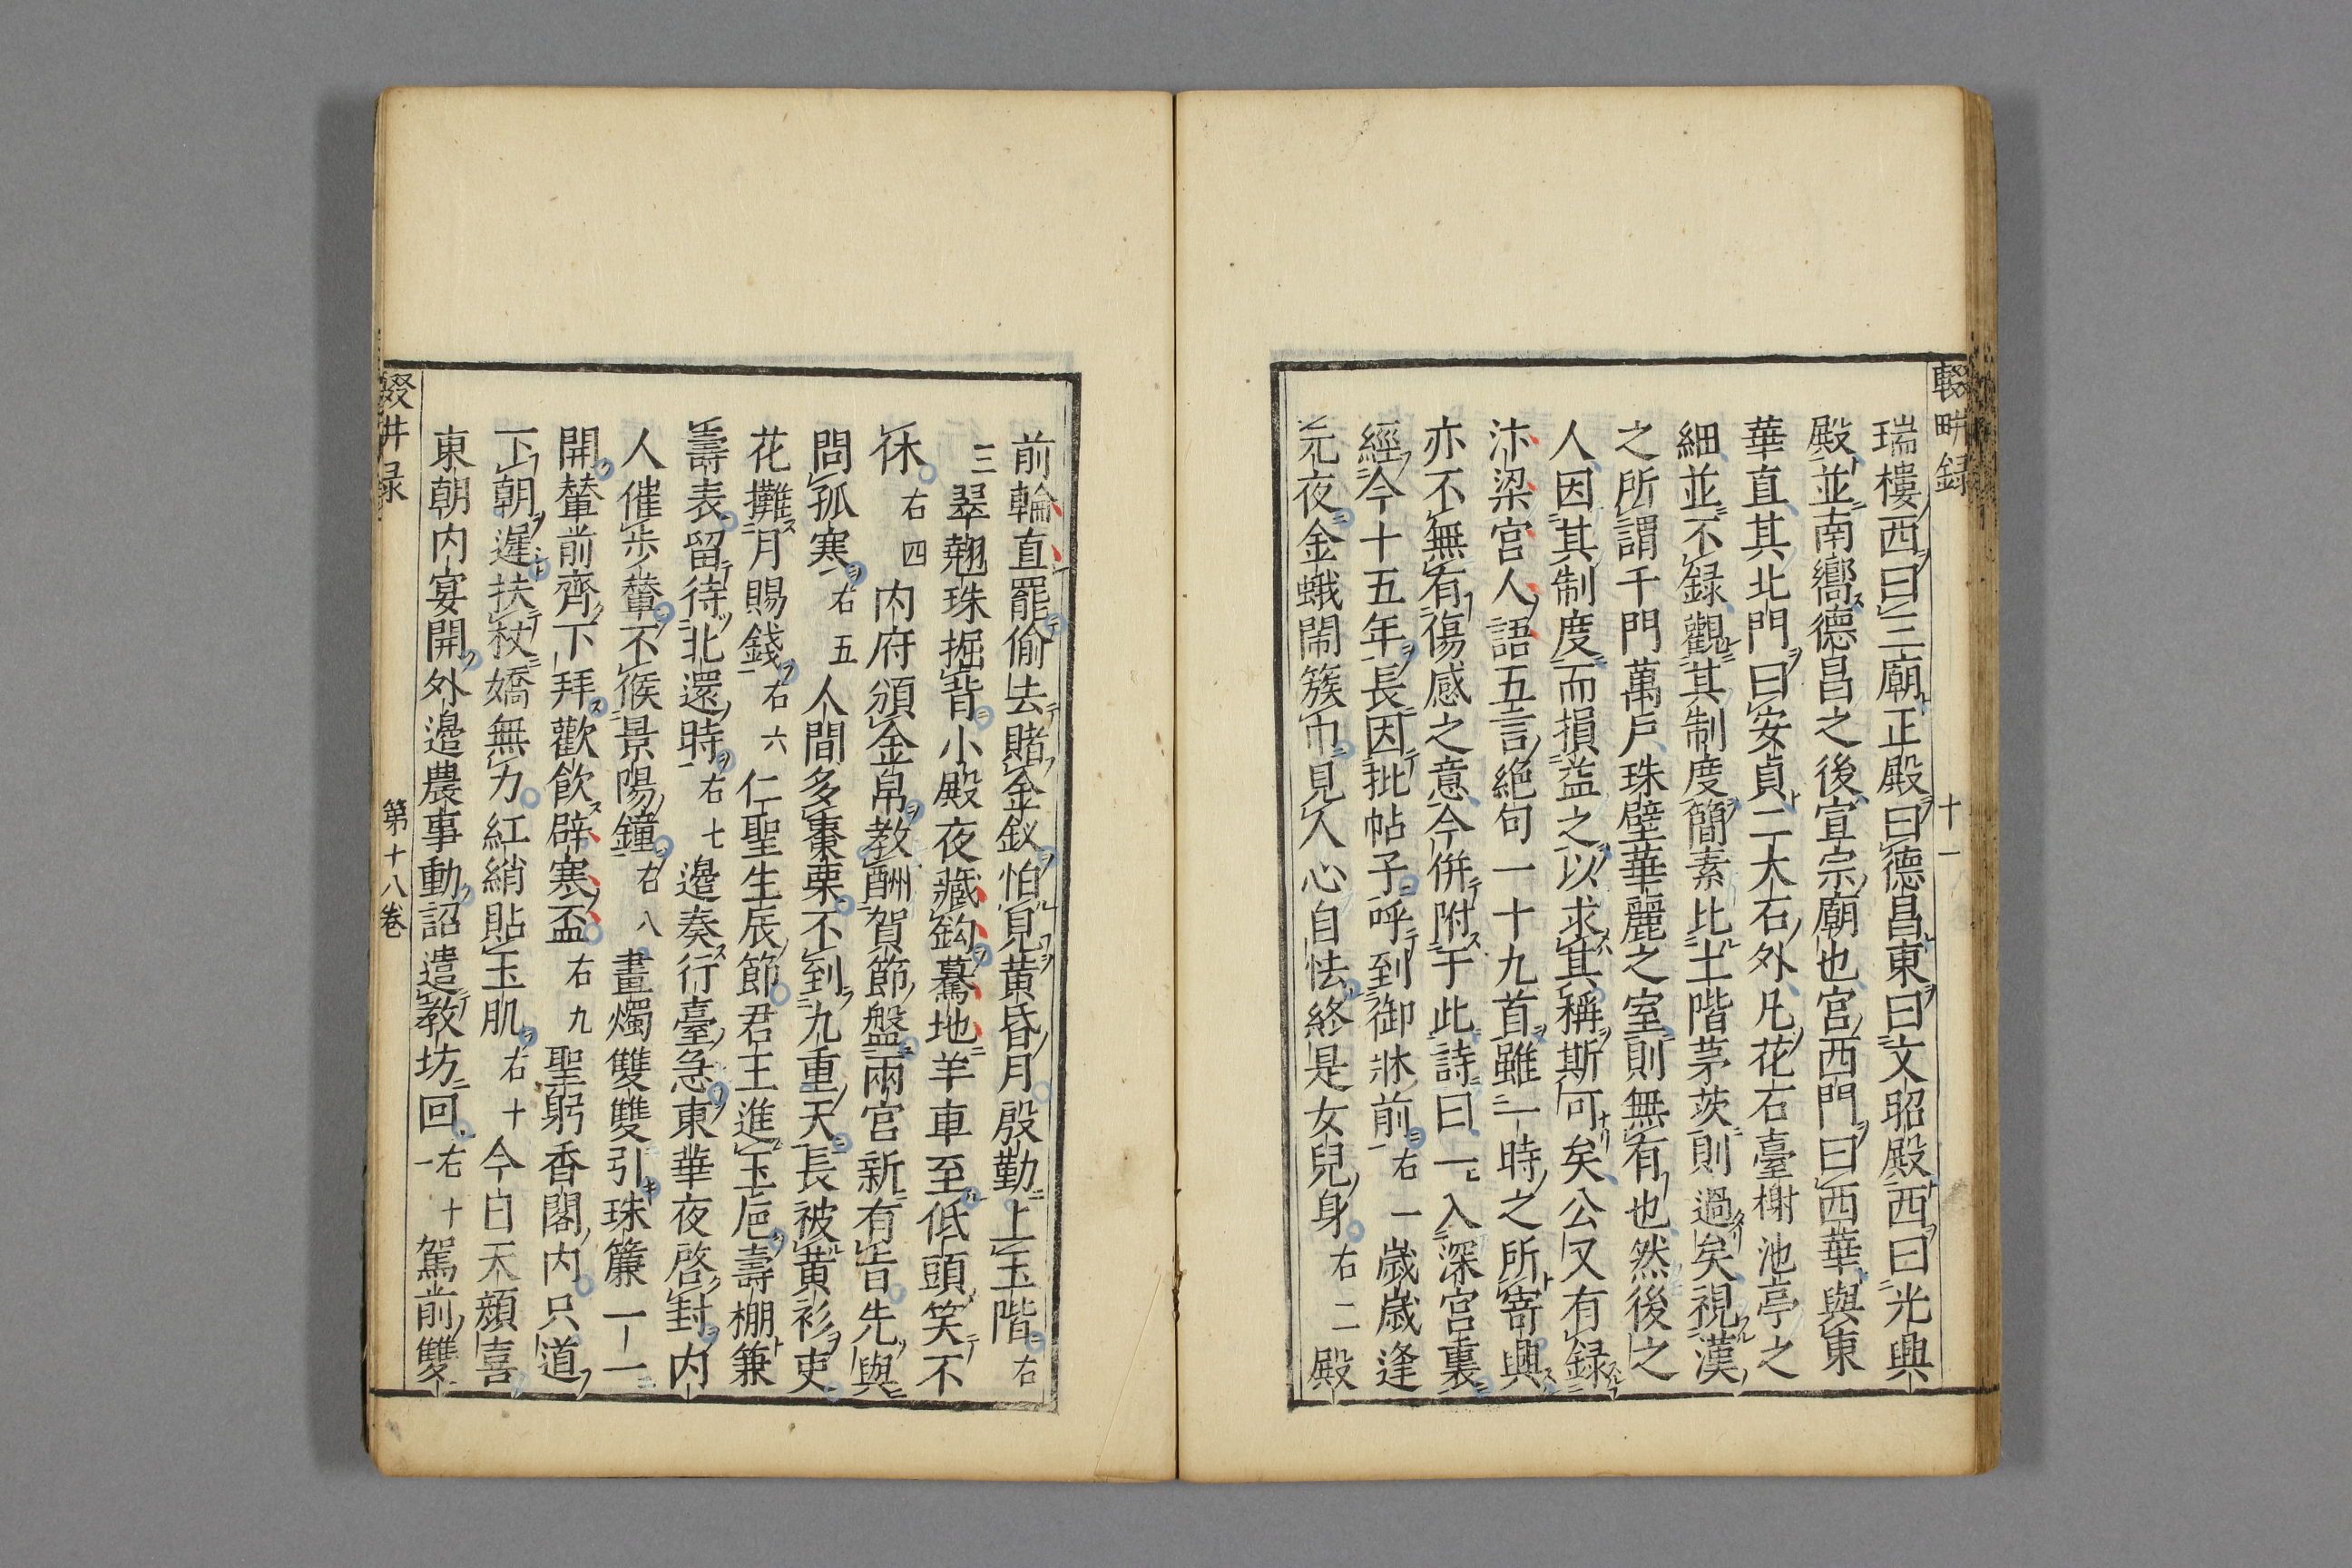 輟畊録
十一
瑞樓西曰三廟正殿曰德昌東曰文昭殿西曰光興
殿並南嚮德昌之後宣宗廟也宮西門曰西華與東
華直其北門曰安貞二大石外凡花石臺榭池亭之
細並不録觀其制度簡素比土階茅茨則過矣視漢
之所謂千門萬戸珠壁華麗之室則無有也然後之
人因其制度而損益之以求其稱斯可矣公又有録
汴梁宮人語五言絶句一十九首雖一時之所寄興
亦不無有傷感之意今併附于此詩曰一入深宮裏
經今十五年長因批帖子呼到御牀前右一歳歳逢
元夜金蛾鬧簇巾見人心自怯終是女兒身右二殿
前輪直罷偷去賭金釵怕見黄昏月殷勤上玉階右
三翠翹珠掘背小殿夜藏鈎驀地羊車至低頭笑不
休右四内府頒金帛教酬賀節盤兩宮新有旨先與
問孤寒右五人間多棗栗不到九重天長被黄衫吏
花攤月賜錢右六仁聖生辰節君王進玉巵壽棚兼
壽表留待北還時右七邊奏行臺急東華夜啓封内
人催歩輦不候景陽鐘右八畫燭雙雙引珠簾一一
開輦前齊下拜歡飲辟寒盃右九聖躬香閣内只道
下朝遲扶杖嬌無力紅綃貼玉肌右十今日天顔喜
東朝内宴開外邉農事動詔遣教坊回右十一駕前雙
輟畊録
第十八卷